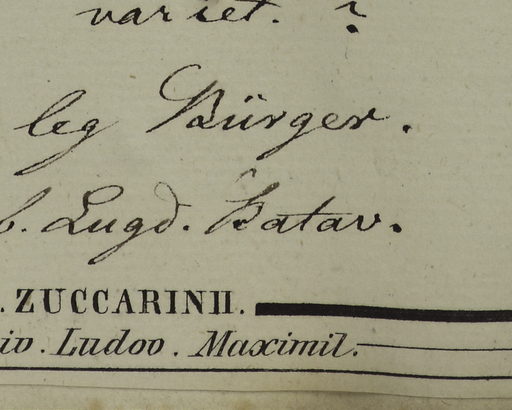 variet. ?
leg Bürger.
b. Lugd. Batav.
. ZUCCARINII.
iv. Ludov. Maximil.